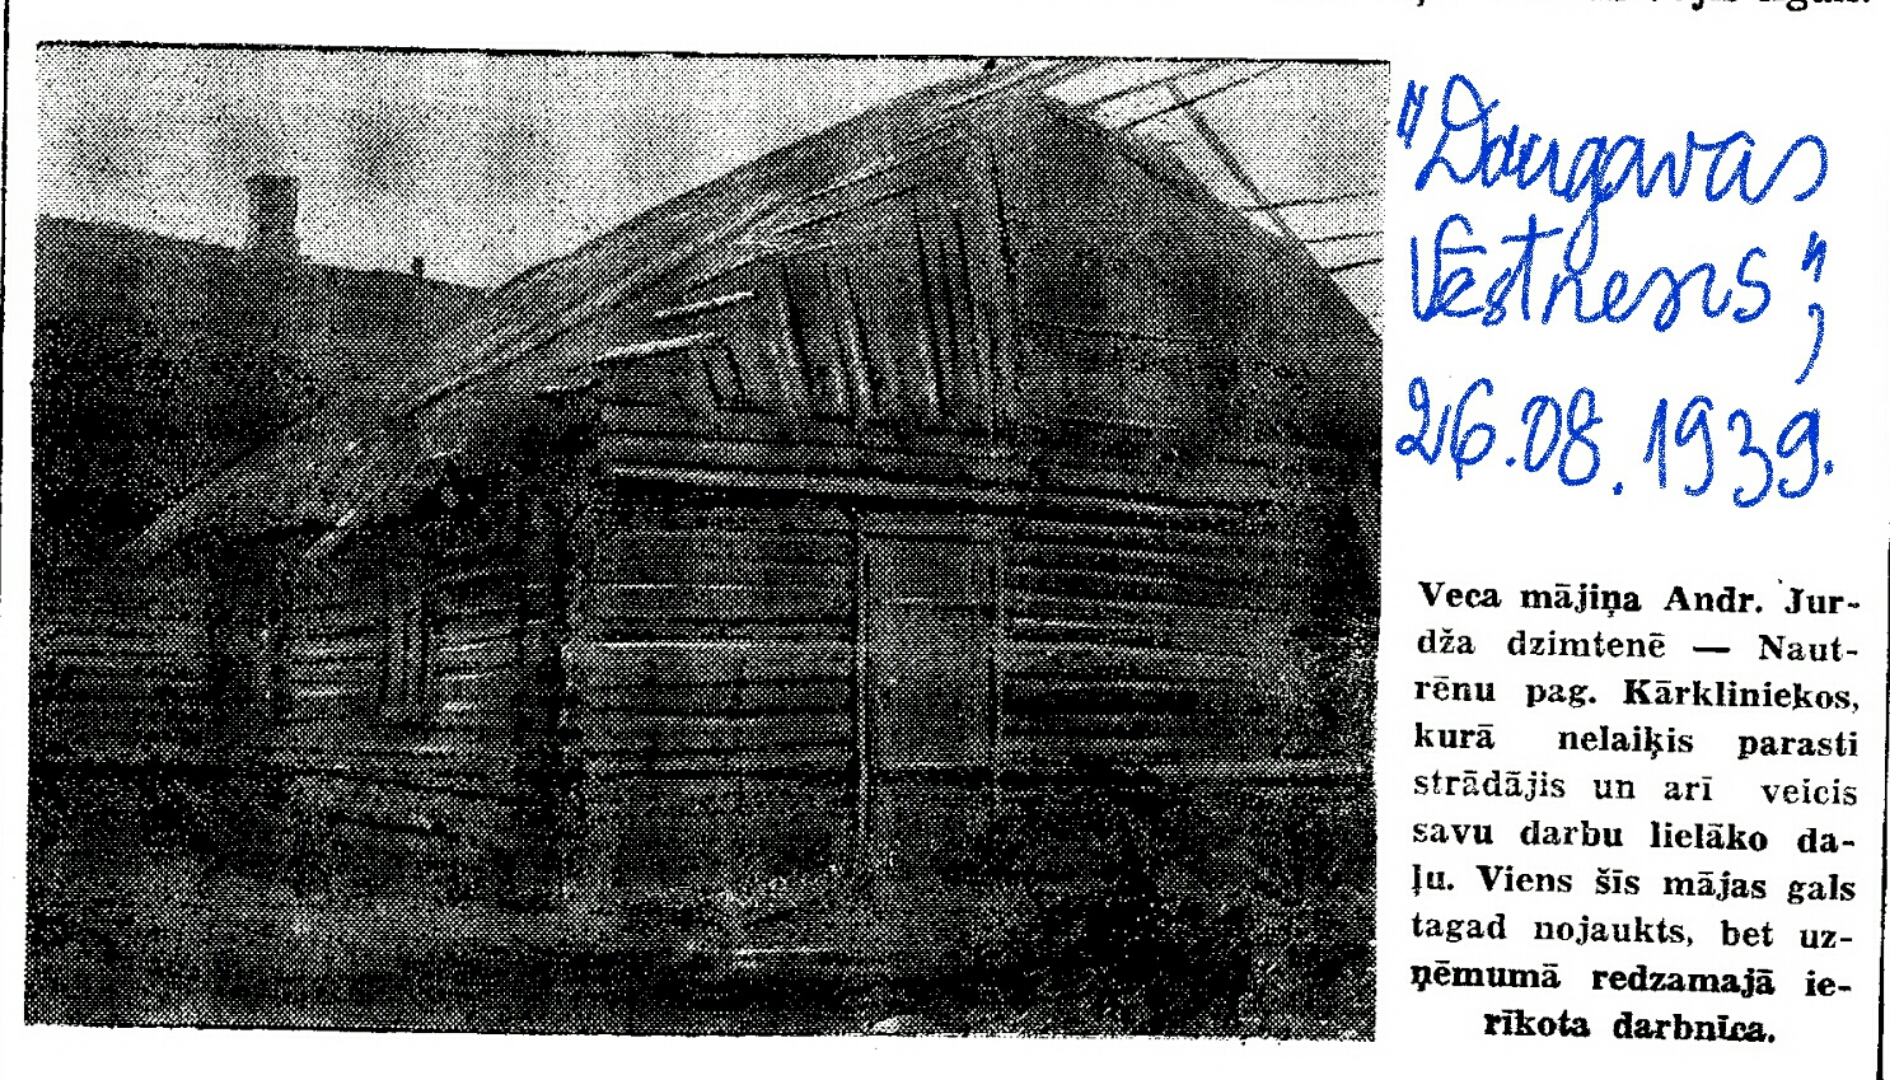 "Daugavas
Vēstnesis",
26.08.1939.
Veca mājiņa Andr. Jur-
dža dzimtenē — Naut-
rēnu pag. Kārkliniekos,
kurā nelaiķis parasti
strādājis un arī veicis
savu darbu lielāko da-
ļu. Viens šīs mājas gals
tagad nojaukts, bet uz-
ņēmumā redzamajā ie-
rīkota darbnīca.